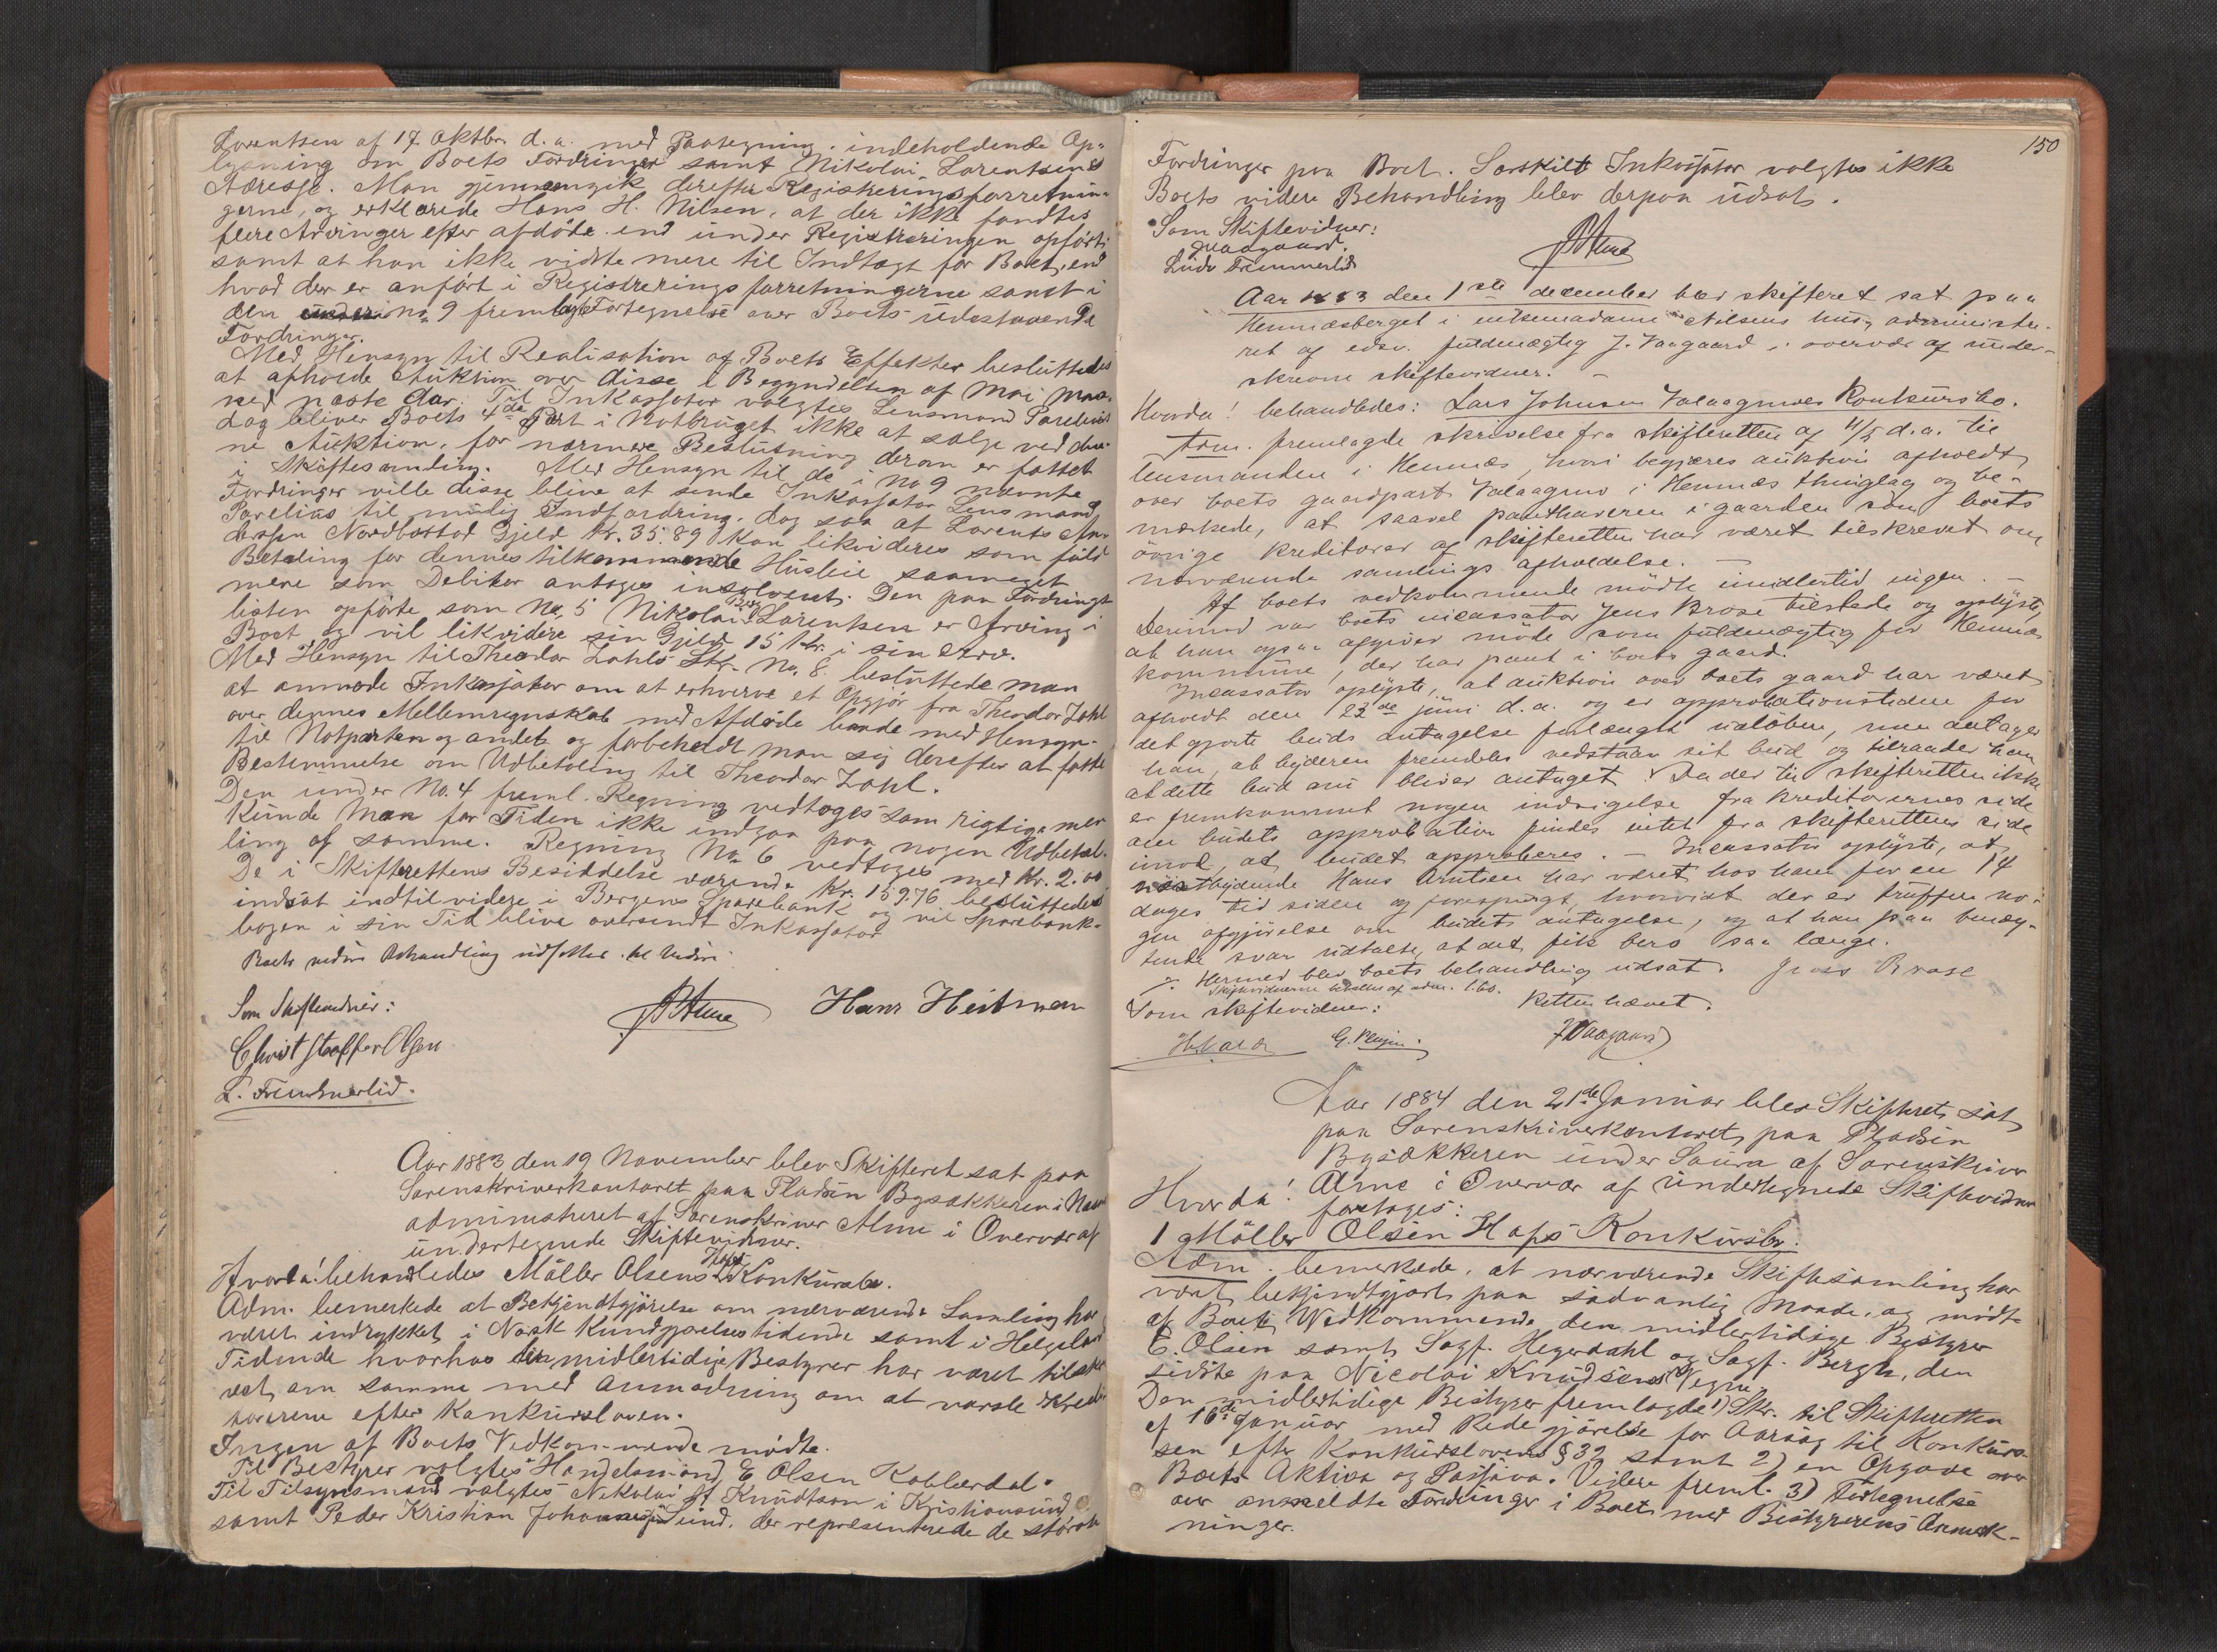 Lorentsen af 17 Oktbr. d. a. med Paategning, indeholdende Op-
lysning om Boets Fordringer samt Nikolai Lorentsens
Adresse. Man gjennemgik derefter Registreringsforretnin-
gerne, og erklærede Hans H. Nilsen, at der ikke fandtes
flere Arvinger efter afdøde end under Registreringen opført
samt at han ikke vidste mere til Indtægt for Boet, end
hvad der er anført i Registreringsforretningerne samt i
den under No 9 fremlagte Fortegnelse over Boets udestaaende
Fordringer.
Med Hensyn til Realisation af Boets Effekter besluttedes
at afholde Auktion over disse i Begyndelsen af Mai Maa-
ned næste Aar. Til Inkassator valgtes Lensmand Parelius
dog bliver Boets 4de Part i Notbruget ikke at sælge ved den-
ne Auktion, før nærmere Beslutning derom er fattet
i Skiftesamling. Med Hensyn til de i No 9 nævnte
Fordringer ville disse blive at sende Inkassator Lensmand
Parelius til mulig Indfordring, dog saa at Lorents An-
derssen Nordbostad Gjeld Kr. 35.89 kan likvideres som fuld
Betaling for dennes tilkommende Husleie saameget
mere som Debitor antages insolvent. Den paa Fordrings-
listen opførte som No. 5 Nikolai Berg Lorentsen er Arving i
Boet og vil likvidere sin Gjeld 15 Kr. i sin Arv.
Med Hensyn til Theodor Zahls Skr. No. 8 besluttede man
at anmode Inkassator om at erhverve et Opgjør fra Theodor Zahl
over dennes Mellemregnskab med Afdøde baade med Hensyn
til Notparten og andet og forbeholdt man sig derefter at fatte
Bestemmelse om Udbetaling til Theodor Zahl.
Den under No. 4 freml. Regning vedtoges som rigtig, men
kunde Man for Tiden ikke indgaa paa nogen Udbetal-
ling af samme. Regning No 6 vedtoges med Kr. 2.00
De i Skifterettens Besiddelse værende Kr. 159.76 besluttedes
indsat indtilvidere i Bergens Sparebank og vil Sparebank-
bogen i sin Tid blive oversendt Inkassator
Boets videre Behandling udsattes til videre.
Som Skiftevidner:
Christstoffer Olsen
L. Fremmerlid.
Alme
Hans Heitman
Aar 1883 den 19 November blev Skifteret sat paa
Sorenskriverkontoret paa Pladsen Bysækkeren i
administreret af Sorenskriver Alme i Overvær af
undertegnede Skiftevidner.
Hvorda! behandledes Møller Olsens Haps Konkursbo.
Adm. bemerkede at Bekjendtgjørelse om nærværende Samling har
været indrykket i Norsk Kundgjørelsestidende samt i Helgelands
Tidende hvorhos den midlertidige Bestyrer har været tilskre-
vet om samme med Anmodning om at varsle Kredi-
torerne efter Konkursloven.
Ingen af Boets Vedkommende mødte.
Til Bestyrer valgtes Handelsmand E. Olsen Kobberdal.
Til Tilsynsmænd valgtes Nikolai H. Knudtzon i Kristiansund
samt Peder Kristian Johannessen Sund, der repræsenterede de største
150
Fordringer paa Boet. Særskilt Inkassator valgtes ikke
Boets videre Behandling blev derpaa udsat.
Som Skiftevidner:
J Vaagaard.
Ludv Fremmerlid
Alme
Aar 1883 den 1ste december blev skifteret sat paa
Hemnæsberget i enkemadame Nilsens hus, administe-
ret af edsv. fuldmægtig J. Vaagaard, i overvær af under-
skrevne skiftevidner. –
Hvorda! behandledes: Lars Johnsen Valaagmoes Konkursbo.
Adm. fremlagde skrivelse fra skifteretten af 4/5 d. a. til
lensmanden i Hemnæs, hvori begjæres auktion afholdt
over boets gaardpart Valaagmo i Hemnæs thinglag og be-
mærkede, at saavel panthaveren i gaarden som boets
øvrige kreditorer af skifteretten har været tilskrevet om
nærværende samlings afholdelse. –
Af boets vedkommende mødte imidlertid ingen. –
Derimod var boets incassator Jens Brose tilstede og oplyste,
at han ogsaa afgiver møde som fuldmægtig for Hemnæs
kommune, der har pant i boets gaard.
Incassator oplyste, at auktion over boets gaard har været
afholdt den 22de juni d. a. og er approbationstiden for
det gjorte buds antagelse forlængst udløben, men antager
han, at byderen fremdeles vedstaar sit bud og tilraader han
at dette bud nu bliver antaget. Da der til skifteretten ikke
er fremkommet nogen indsigelse fra kreditorernes side
om budets approbation findes intet fra skifterettens side
imod, at budet approberes. – Incassator oplyste, at
høistbydende Hans Arntsen har været hos ham for en 14
dages tid siden og forespurgt, hvorvidt der er truffen no-
gen afgjørelse om budets antagelse, og at han paa benæg-
tende svar udtalte, at det fik bero saa længe.
Hermed blev boets behandling udsat. Jens Brose
Skiftevidnerne betaltes af adm. 1.60.
Som skiftevidner: Retten hævet.
JVaagaard
Aar 1884 den 21de Januar blev Skifteret sat
paa Sorenskriverkontoret paa Pladsen
Bysækkeren under Saura af Sorenskriver
Alme i Overvær af undertegnede Skiftevidner
Hvorda! foretoges:
1 Møller Olsen Haps Konkursbo.
Adm. bemerkede, at nærværende Skiftesamling har
været bekjendtgjort paa sædvanlig Maade, og mødte
af Boets Vedkommende den midlertidige Bestyrer
E. Olsen samt Sagf. Hegerdahl og Sagf. Bergh, den
sidste paa Nicolai Knudsens Vegne.
Den midlertidige Bestyrer fremlagde 1) Skr. til Skifteretten
af 16de Januar med Redegjørelse for Aarsag til Konkur-
sen efter Konkurslovens § 32 samt 2) en Opgave over
Boets Aktiva og Passiva. Videre freml. 3) Fortegnelse
over anmeldte Fordringer i Boet med Bestyrerens Anmerk-
ninger.